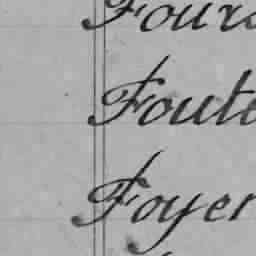 Four
Foute
Foyer